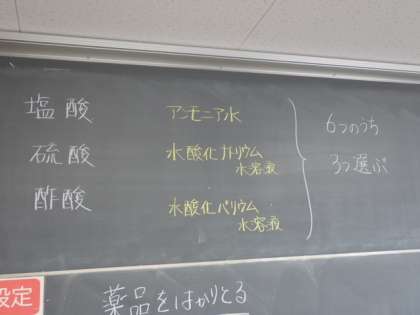 塩酸
硫酸
酢酸
アンモニア水
水酸化ナトリウム
水溶液
水酸化バリウム
水溶液
6つのうち
3つ選ぶ
設定
薬品をはかりとる